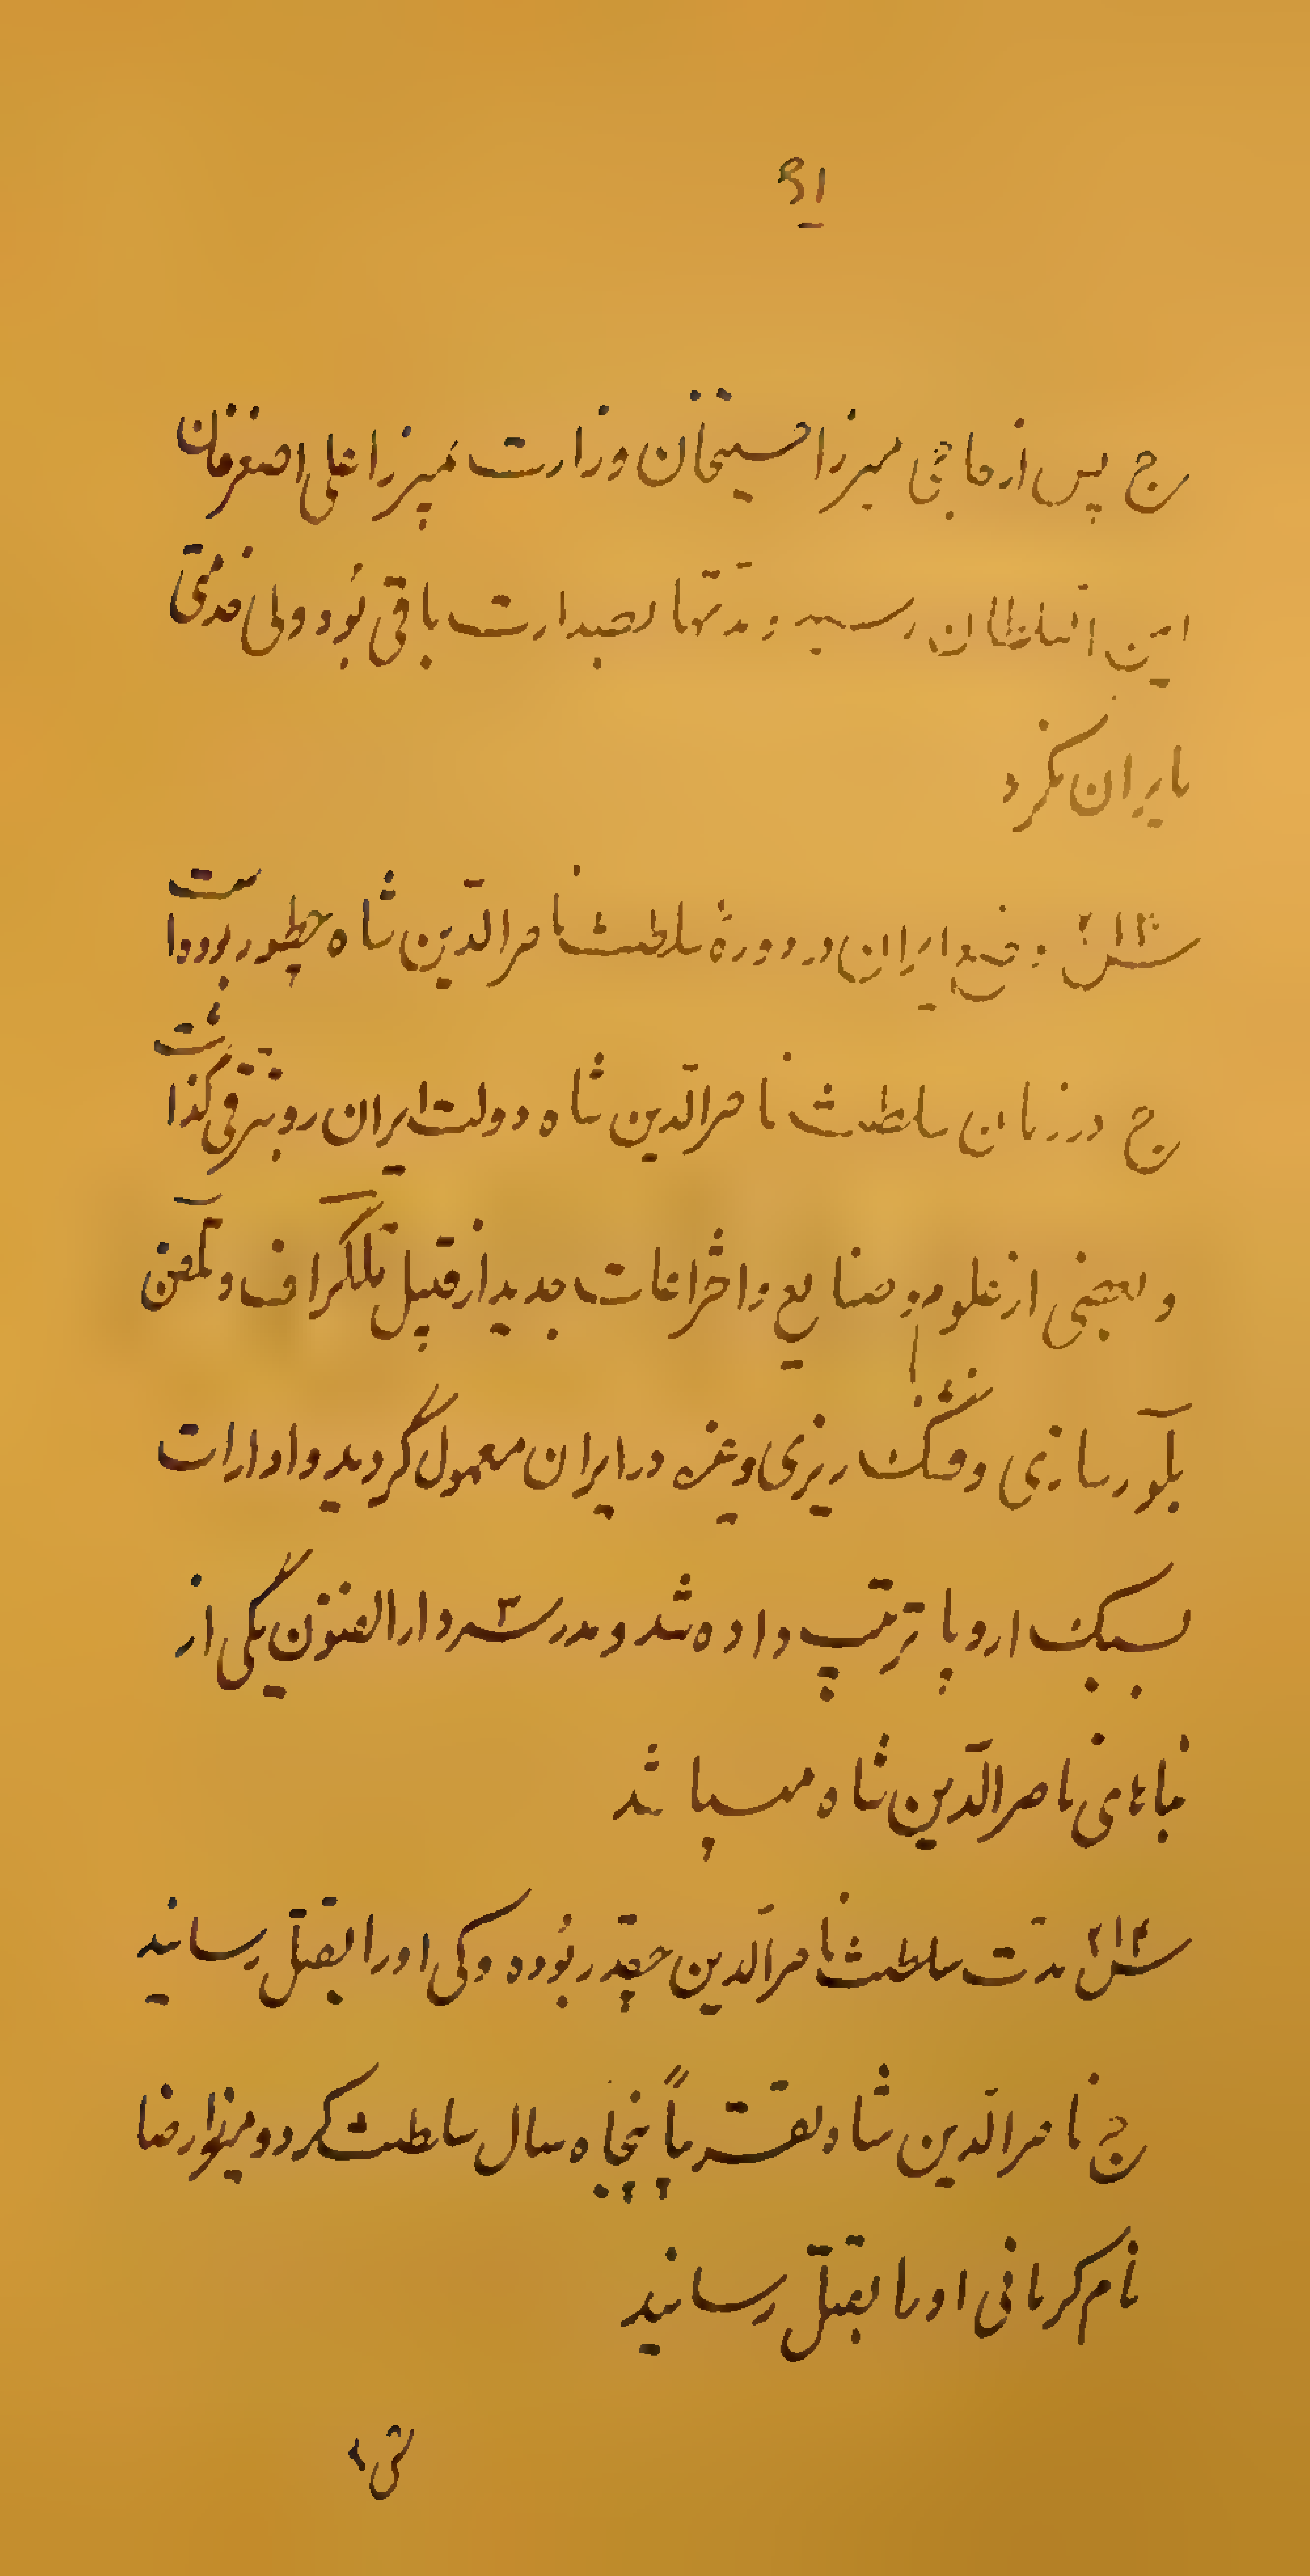 ۹۱
ج پس از حاجی میرزا حسینخان وزارت بمیرزا علی اصغرخان
امین السلطان رسید و مدتها بصدارت باقی بود ولی خدمتی
بایران نکرد
س۲۱۳ وضع ایران در دورهٔ سلطنت ناصرالدّین شاه چطور بوده است
ج در زمان سلطنت ناصرالدّین شاه دولت ایران رو بترقی گذاشت
و بعضی از علوم و صنایع و اختراعات جدید از قبیل تلگراف و تلفن
بلّور سازی و فشنگ ریزی و غیره در ایران معمول گردید و ادارات
بسبک اروپا ترتیب داده شد و مدرسه دارالفنون یکی از
بناهای ناصرالدّین شاه میباشد
س۲۱۴ مدّت سلطنت ناصرالدین چقدر بوده و کی او را بقتل رسانید
ج ناصرالدّین شاه تقریباً پنجاه سال سلطنت کرد و میرزا رضا
نام کرمانی او را بقتل رسانید